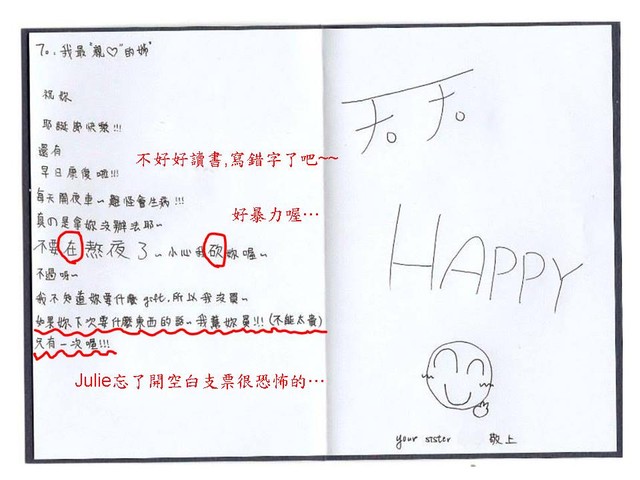 To. 我最"親♡"的姊"
祝妳
耶誕節快樂!!!
還有
早日康復啦!!!
不好好讀書,寫錯字了吧~~
每天開夜車~難怪會生病!!!
好暴力喔…
真の是拿妳沒辦法耶~
不要在熬夜了~小心我砍妳喔~
不過呀~
我不知道妳要什麼gift,所以我沒買~
如果妳下次要什麼東西的話~我幫妳買!!!(不能太貴)
只有一次喔!!!
Julie忘了開空白支票很恐怖的…
天。天。
HAPPY
your sister 敬上